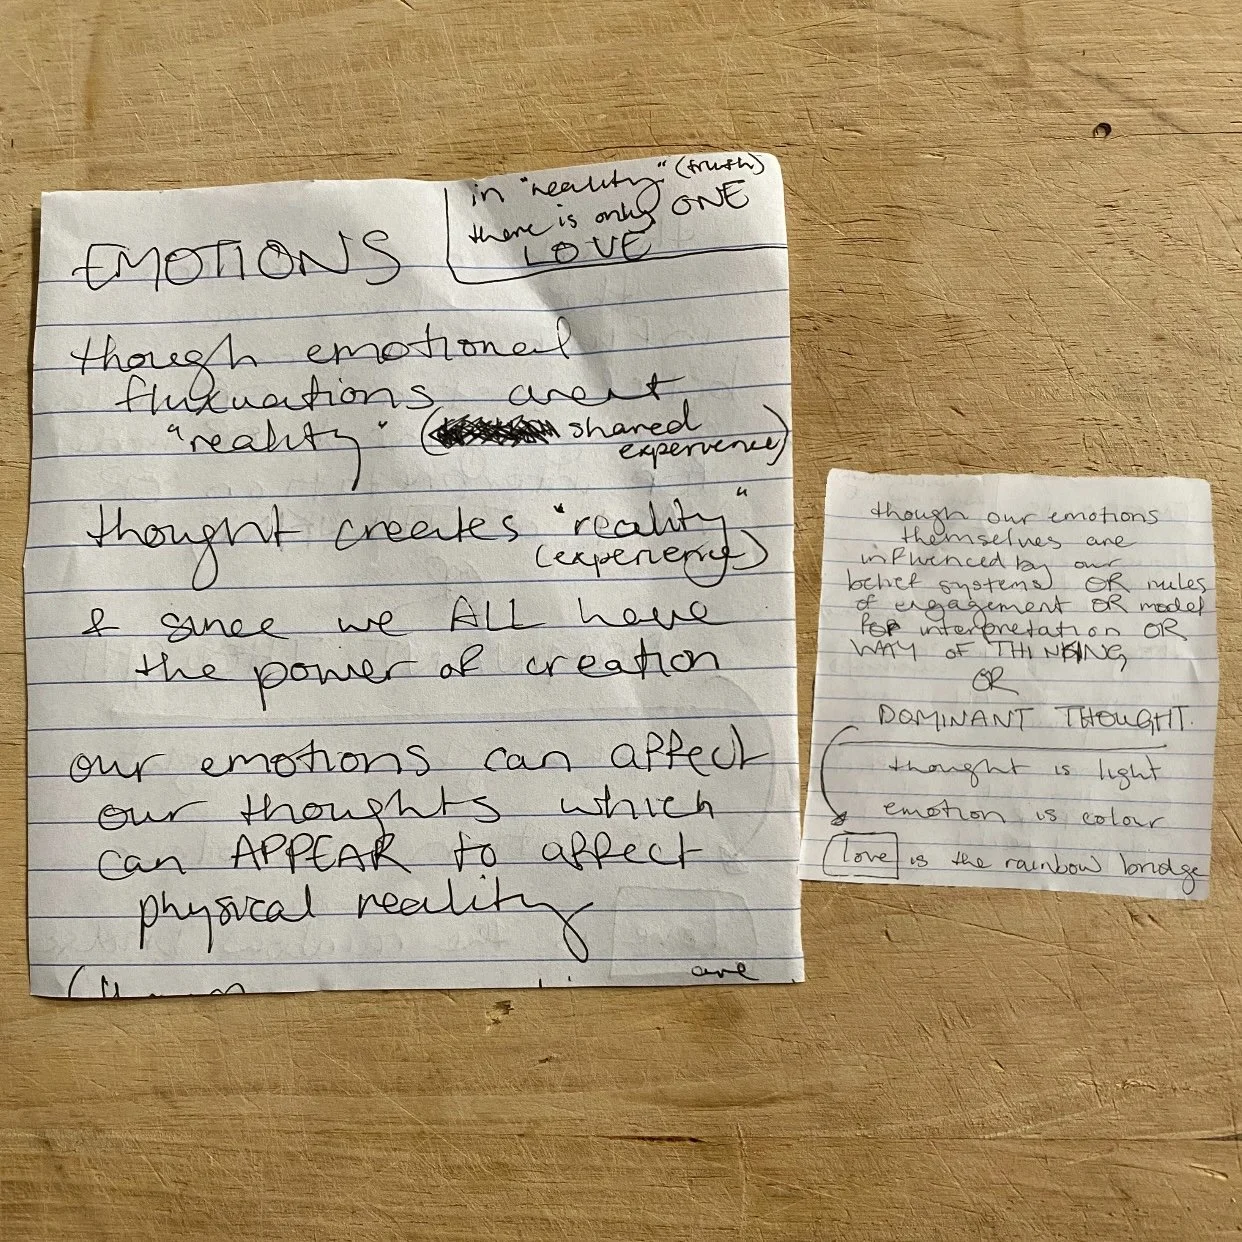 EMOTIONS
in "reality" (truth)
there is only ONE
LOVE
though emotional
fluxuations arent
"reality" (shared
experience)
thought creates "reality"
(experience)
& since we ALL have
the power of creation
our emotions can affect
our thoughts which
can APPEAR to affect
physical reality
are
though our emotions
themselves are
influenced by our
belief systems OR rules
of engagement OR model
for interpretation OR
WAY OF THINKING
OR
DOMINANT THOUGHT.
thought is light
emotion is colour
love is the rainbow bridge